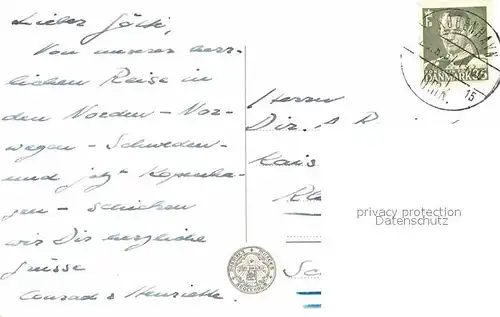 Lieber Götti,
Von unserer herr-
lichen Reise in
den Norden - Nor-
wegen - Schweden -
und jetzt Kopenha-
gen - schicken
wir Dir herzliche
Grüsse
Conrad & Henriette.
KØBENHAVN
DANMARK 35
15
Herrn
Dir. A. R
Kais
Kl
privacy protection
Datenschutz
Sc